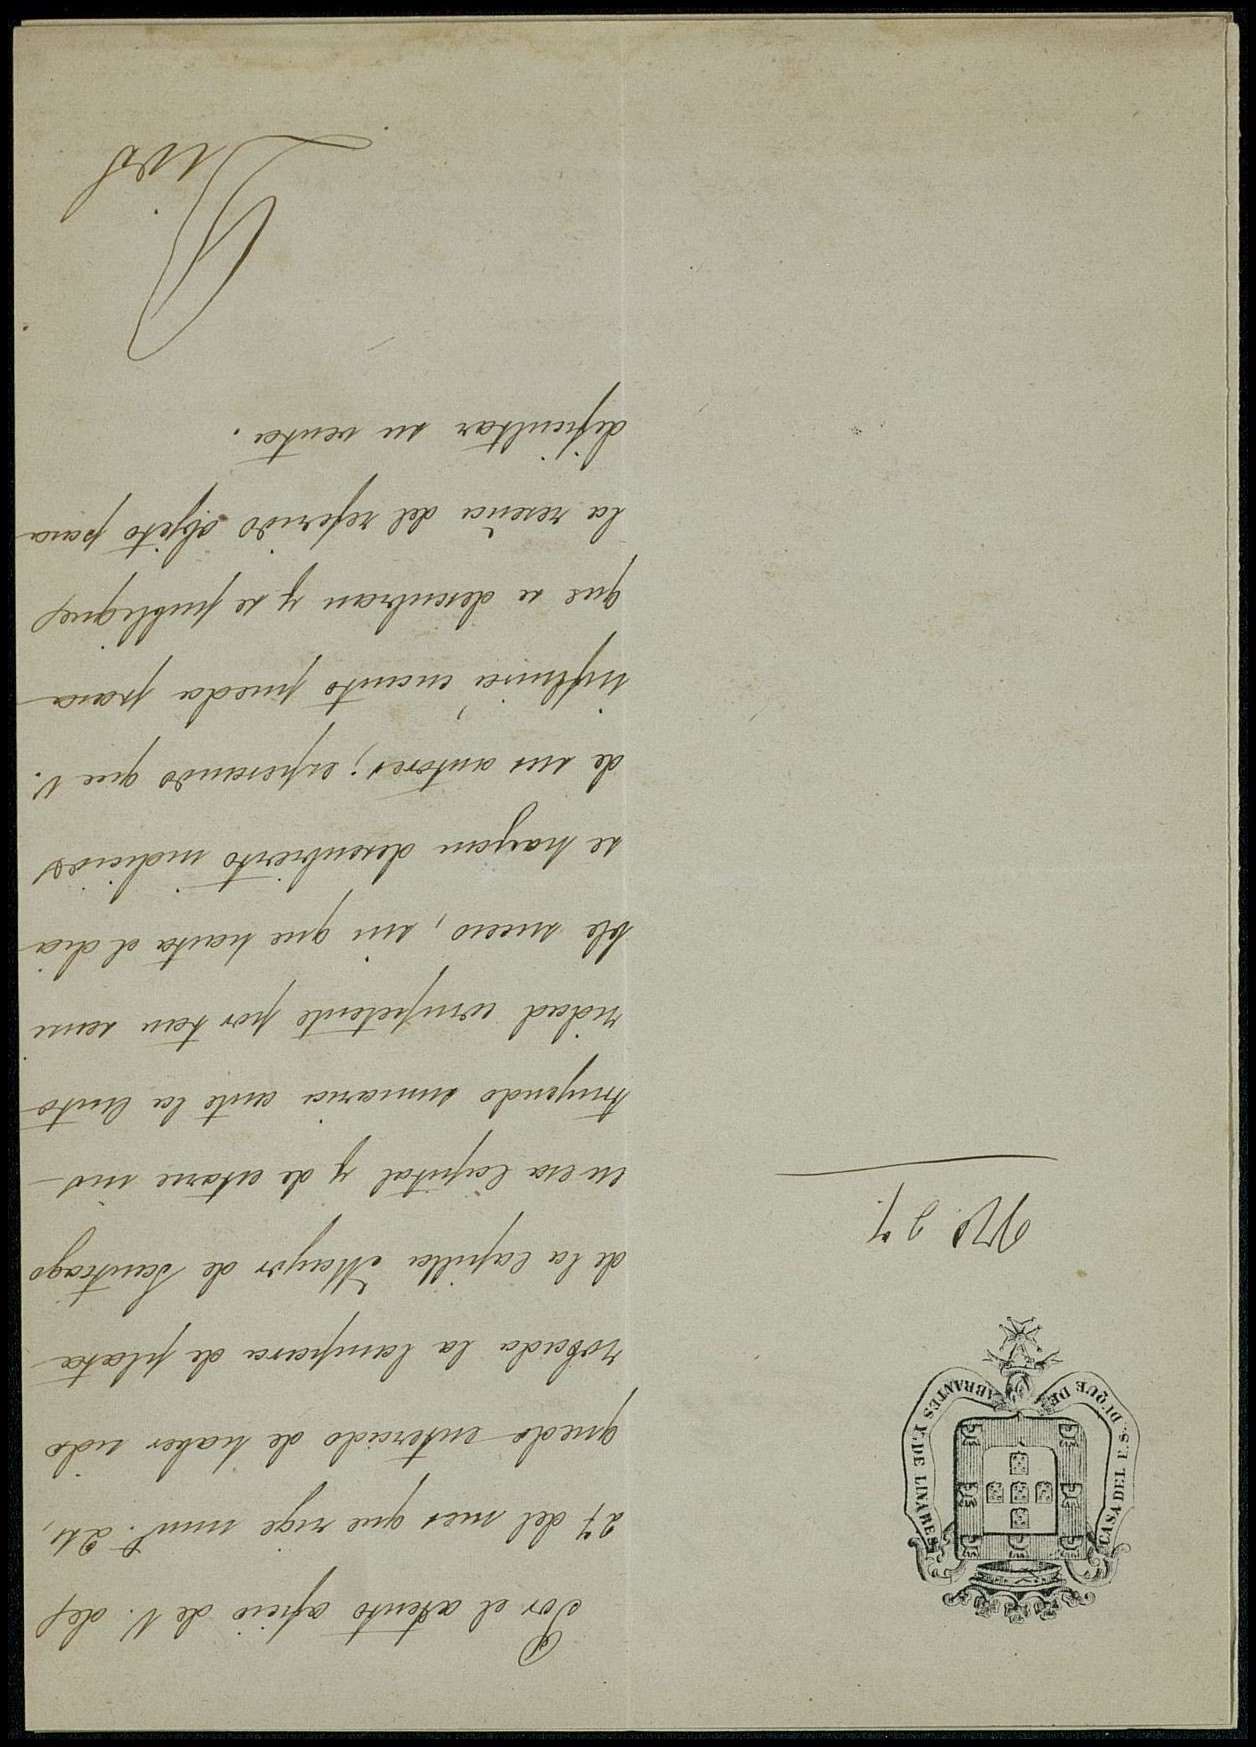 CASA DEL E.S. DUQUE DE ABRANTES Y DE LINARES
Nº 27.
Por el atento oficio de V. del
27 del mes que rige num.º 26,
quedo enterado de haber sido
robada la lampara de plata
de la Capilla Mayor de Santiago
en esa Capital y de estarse ins
truyendo sumaria ante la Auto
ridad competente por tan sensi
ble suceso, sin que hasta el dia
se hayan descubierto indicios
de sus autores; esperando que V.
influirá cuanto pueda para
que se descubran y se publique
la reseña del referido objeto para
dificultar su venta.
Dios